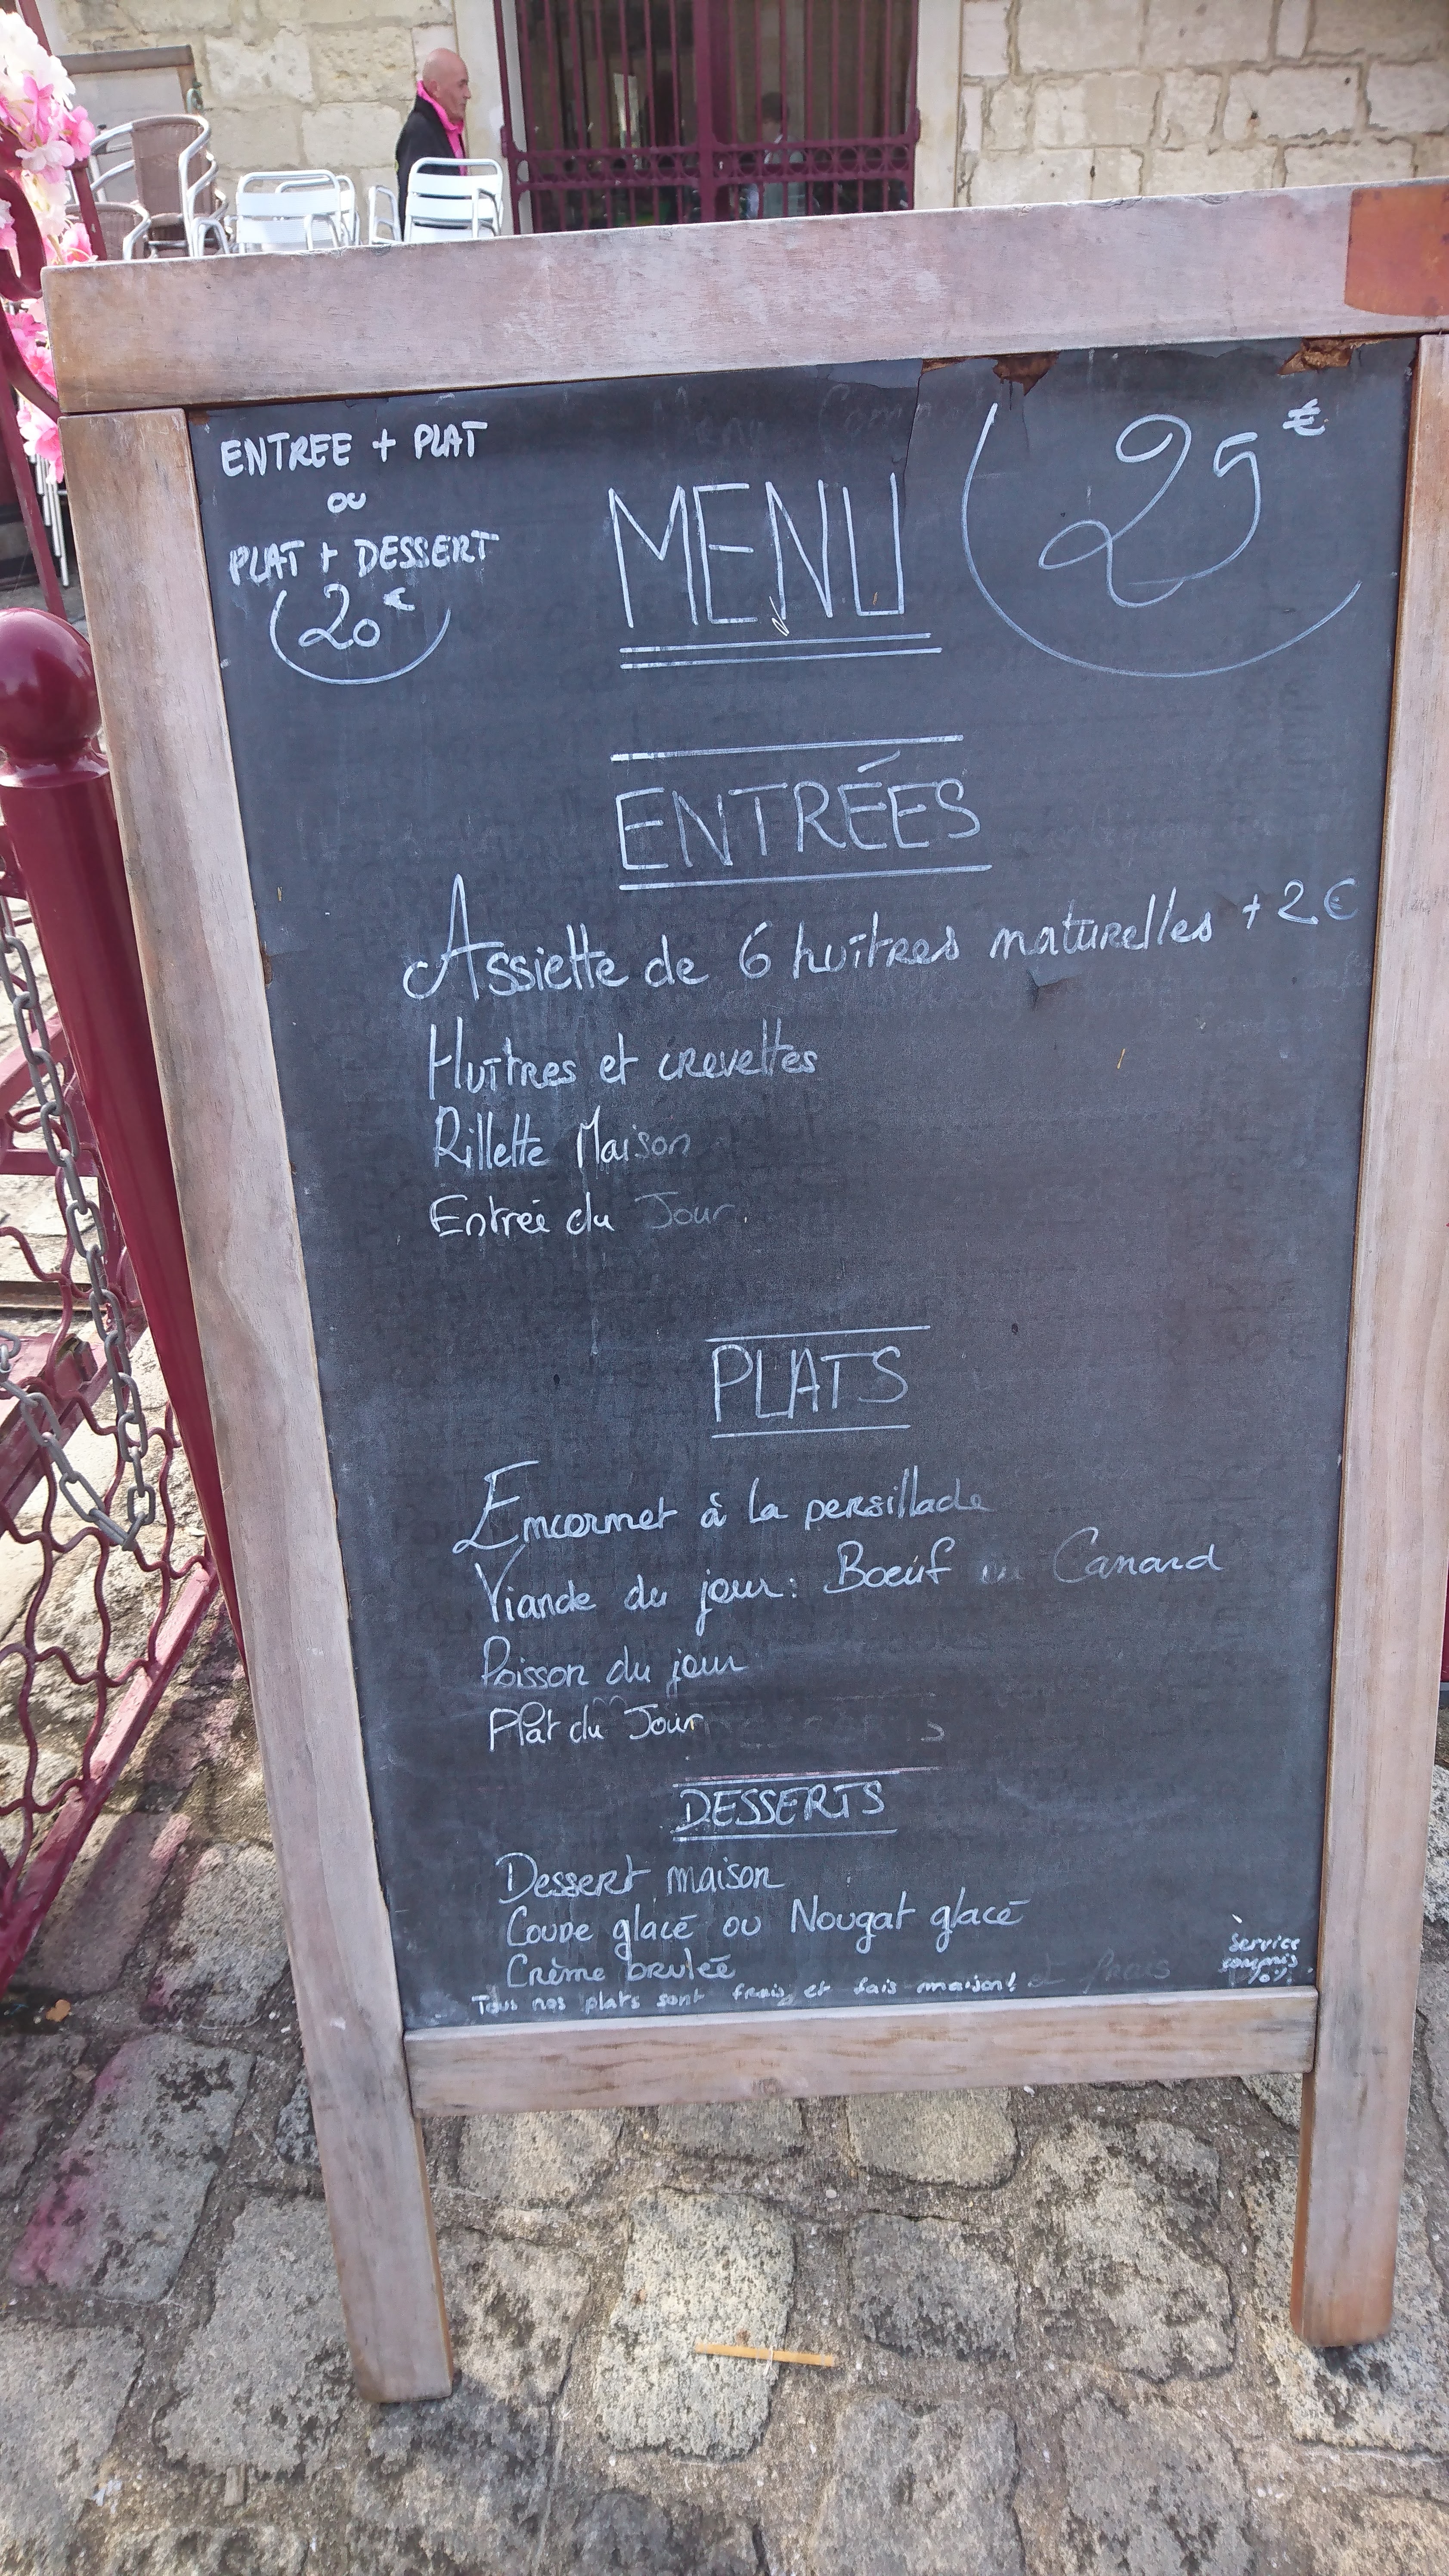 ENTREE + PLAT
ou
PLAT + DESSERT
20€
MENU
25€
ENTRÉES
Assiette de 6 huîtres naturelles + 2 €
Huîtres et crevettes
Rillette Maison
Entrée du Jour.
PLATS
Emcornet à la persillade
Viande du jour : Boeuf ou Canard
Poisson du jour
Plat du Jour
DESSERTS
Dessert maison
Coupe glacé ou Nougat glacé
Crème brulée
Tous nos plats sont frais et fais maison!
Service
compris